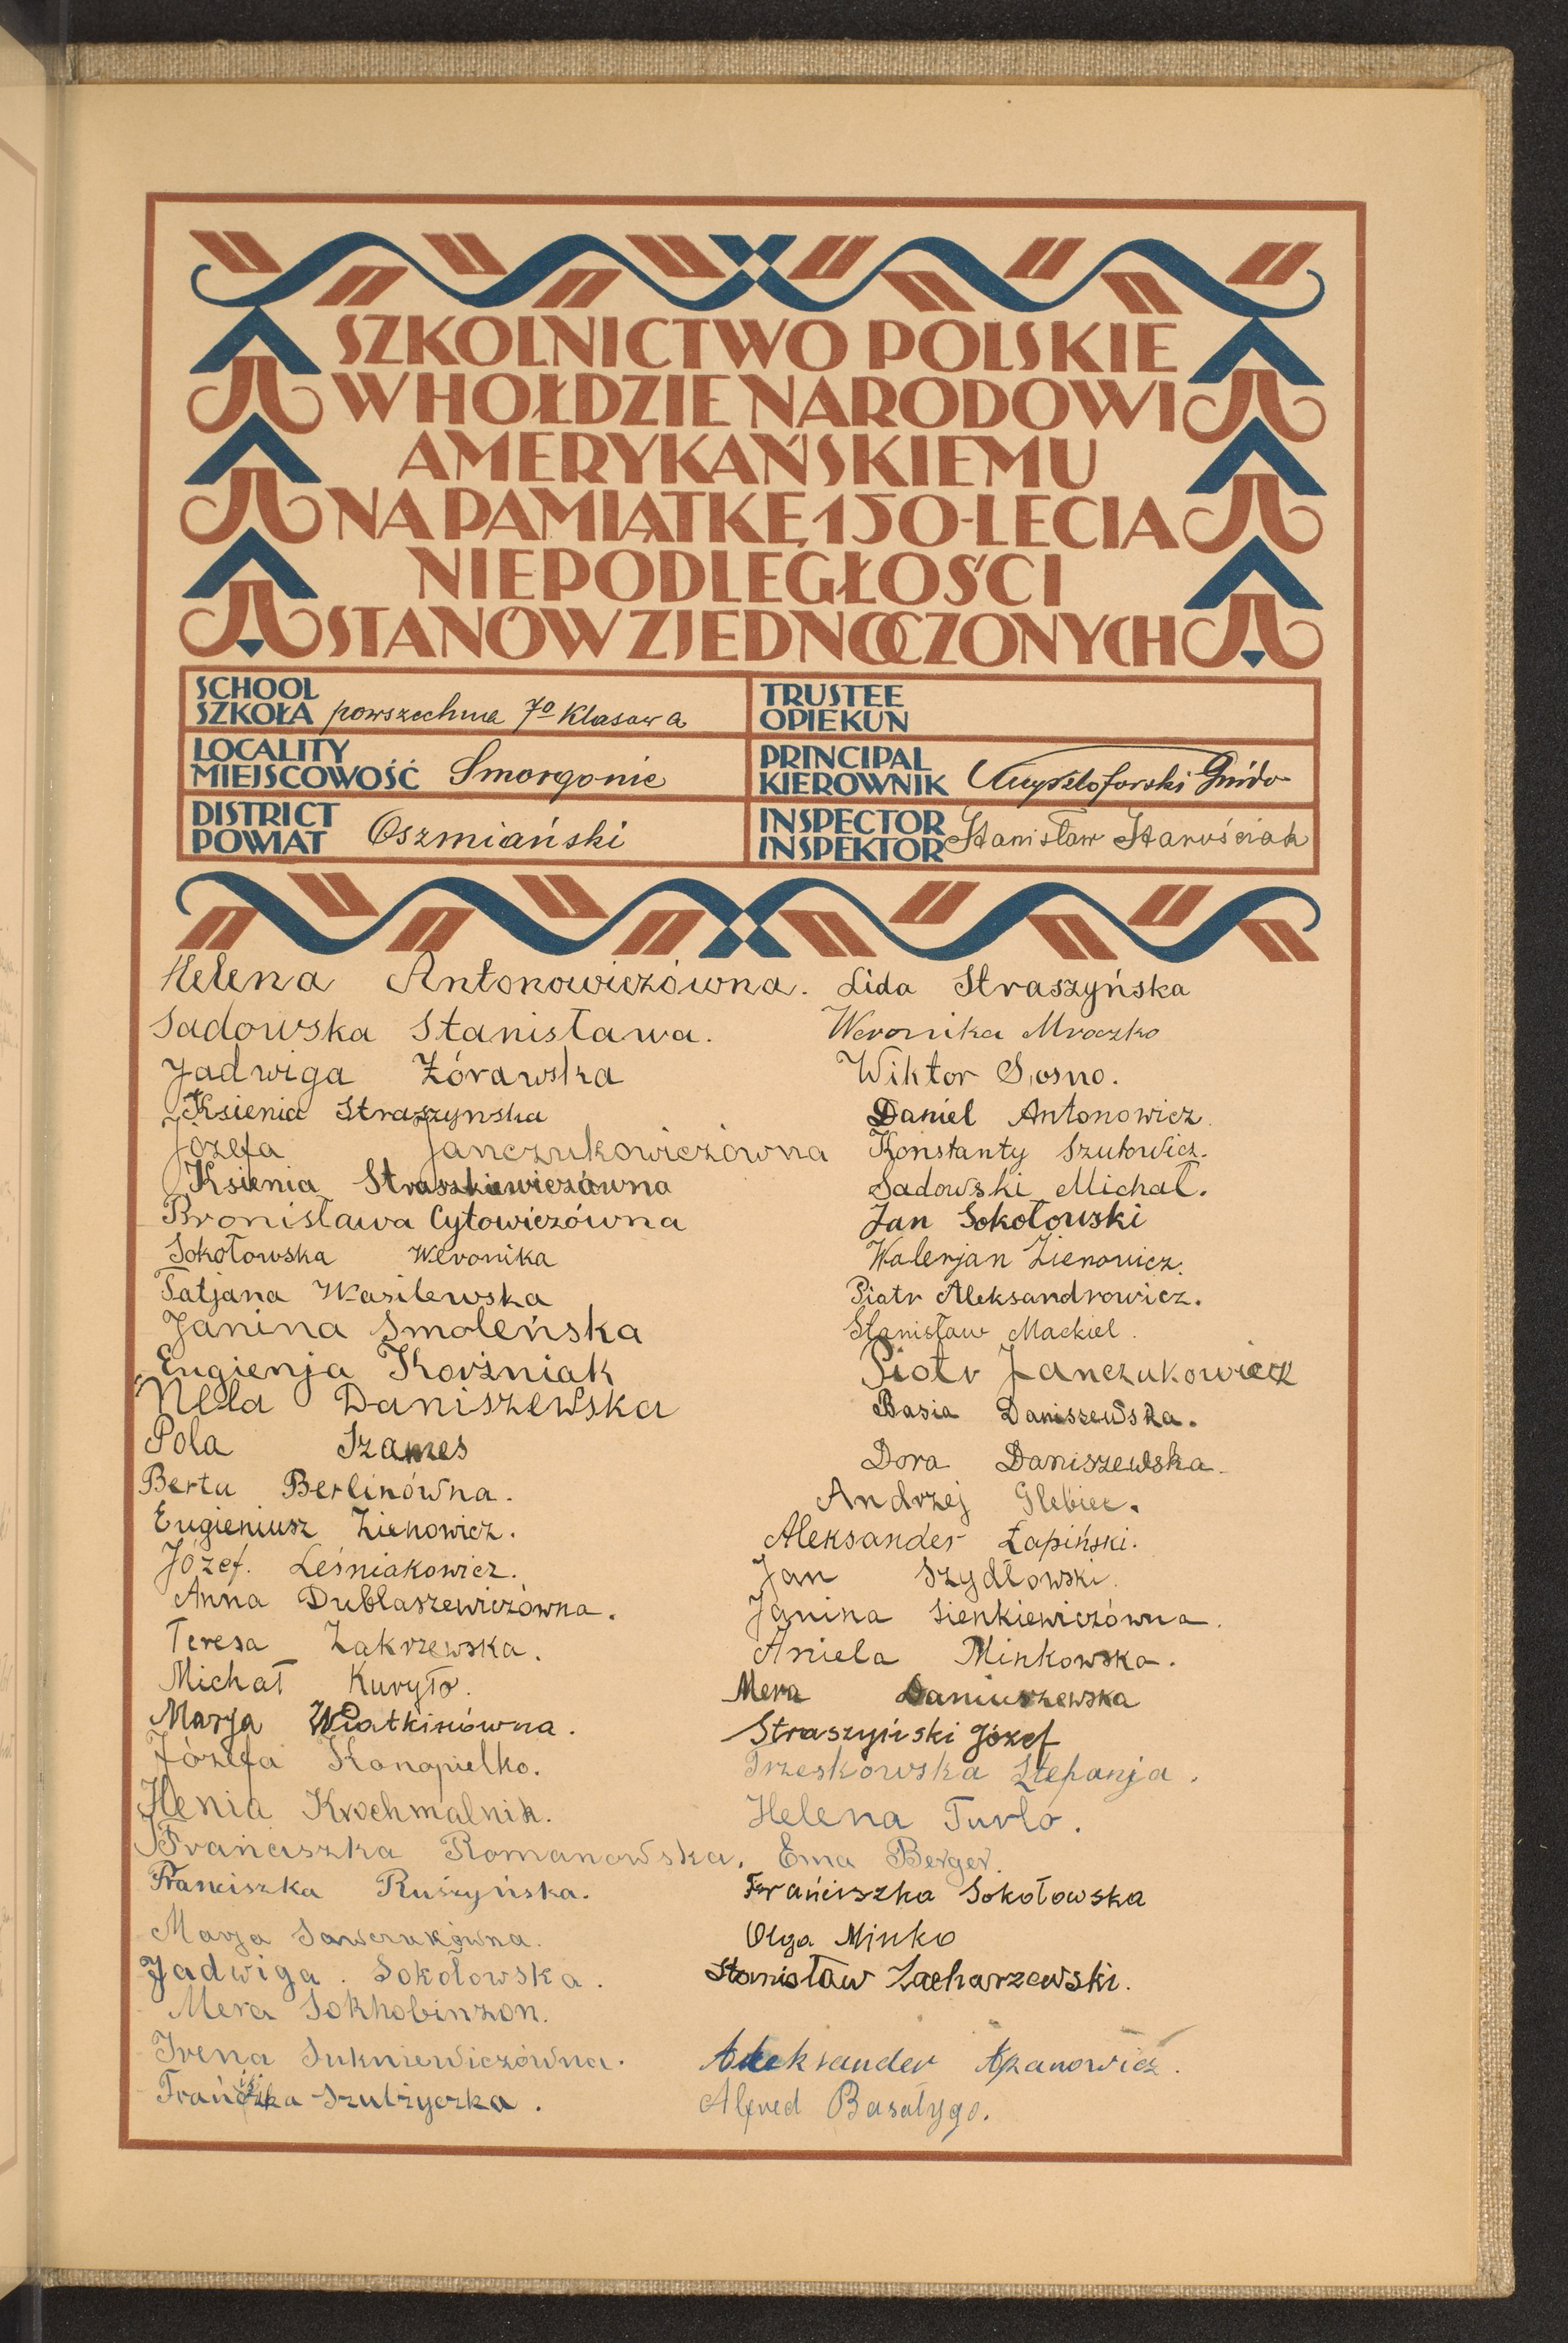 SZKOLNICTWO POLSKIE
W HOŁDZIE NARODOWI
AMERYKAŃSKIEMU
NA PAMIĄTKĘ 150-LECIA
NIEPODLEGŁOŚCI
STANÓW ZJEDNOCZONYCH
SCHOOL
SZKOŁA powszechna 7º klasowa
TRUSTEE
OPIEKUN
LOCALITY
MIEJSCOWOŚĆ Smorgonie
PRINCIPAL
KIEROWNIK Guido
DISTRICT
POWIAT Oszmiański
INSPECTOR
INSPEKTOR Stanisław Staruściak
Helena Antonowiczówna.
Sadowska Stanisława.
Jadwiga Żórawska
Ksienia Straszynska
Józefa Janczukowiczówna
Ksienia Straszkiewiczówna
Bronisława Cytowiczówna
Sokołowska Weronika
Tatjana Wasilewska
Janina Smoleńska
Eugienja Korźniak
Nela Daniszewska
Pola Szames
Berta Berlinówna.
Eugieniusz Zienowicz.
Józef. Leśniakowicz.
Anna Dubłaszewiczówna.
Teresa Zakrzewska.
Michał Kuryło.
Marja Wiatkinówna.
Józefa Konopielko.
Henia Krochmalnik.
Franciszka Romanowska.
Franciszka Ruszyńska.
Marja Sawczukówna.
Jadwiga. Sokołowska.
Mera Sokhobinzon.
Irena Sukniewiczówna.
Franciszka Szulżyczka.
Lida Straszyńska
Weronika Mroczko
Wiktor Sosno.
Daniel Antonowicz.
Konstanty Szutowicz.
Sadowski Michał.
Jan Sokołowski
Walerjan Zienowicz.
Piotr Aleksandrowicz.
Stanisław Mackiel.
Piotr Janczukowicz
Basia Daniszewska.
Dora Daniszewska.
Andrzej Glebiec.
Aleksander Łapiński.
Jan Szydłowski.
Janina Sienkiewiczówna.
Aniela Minkowska.
Mera Daniuszewska
Straszyński Józef
Trzeskowska Stefanja.
Helena Turlo.
Ema Berger.
Franciszka Sokołowska
Olga Minko
Stanisław Zacharzewski.
Aleksander Apanowicz.
Alfred Basałygo.